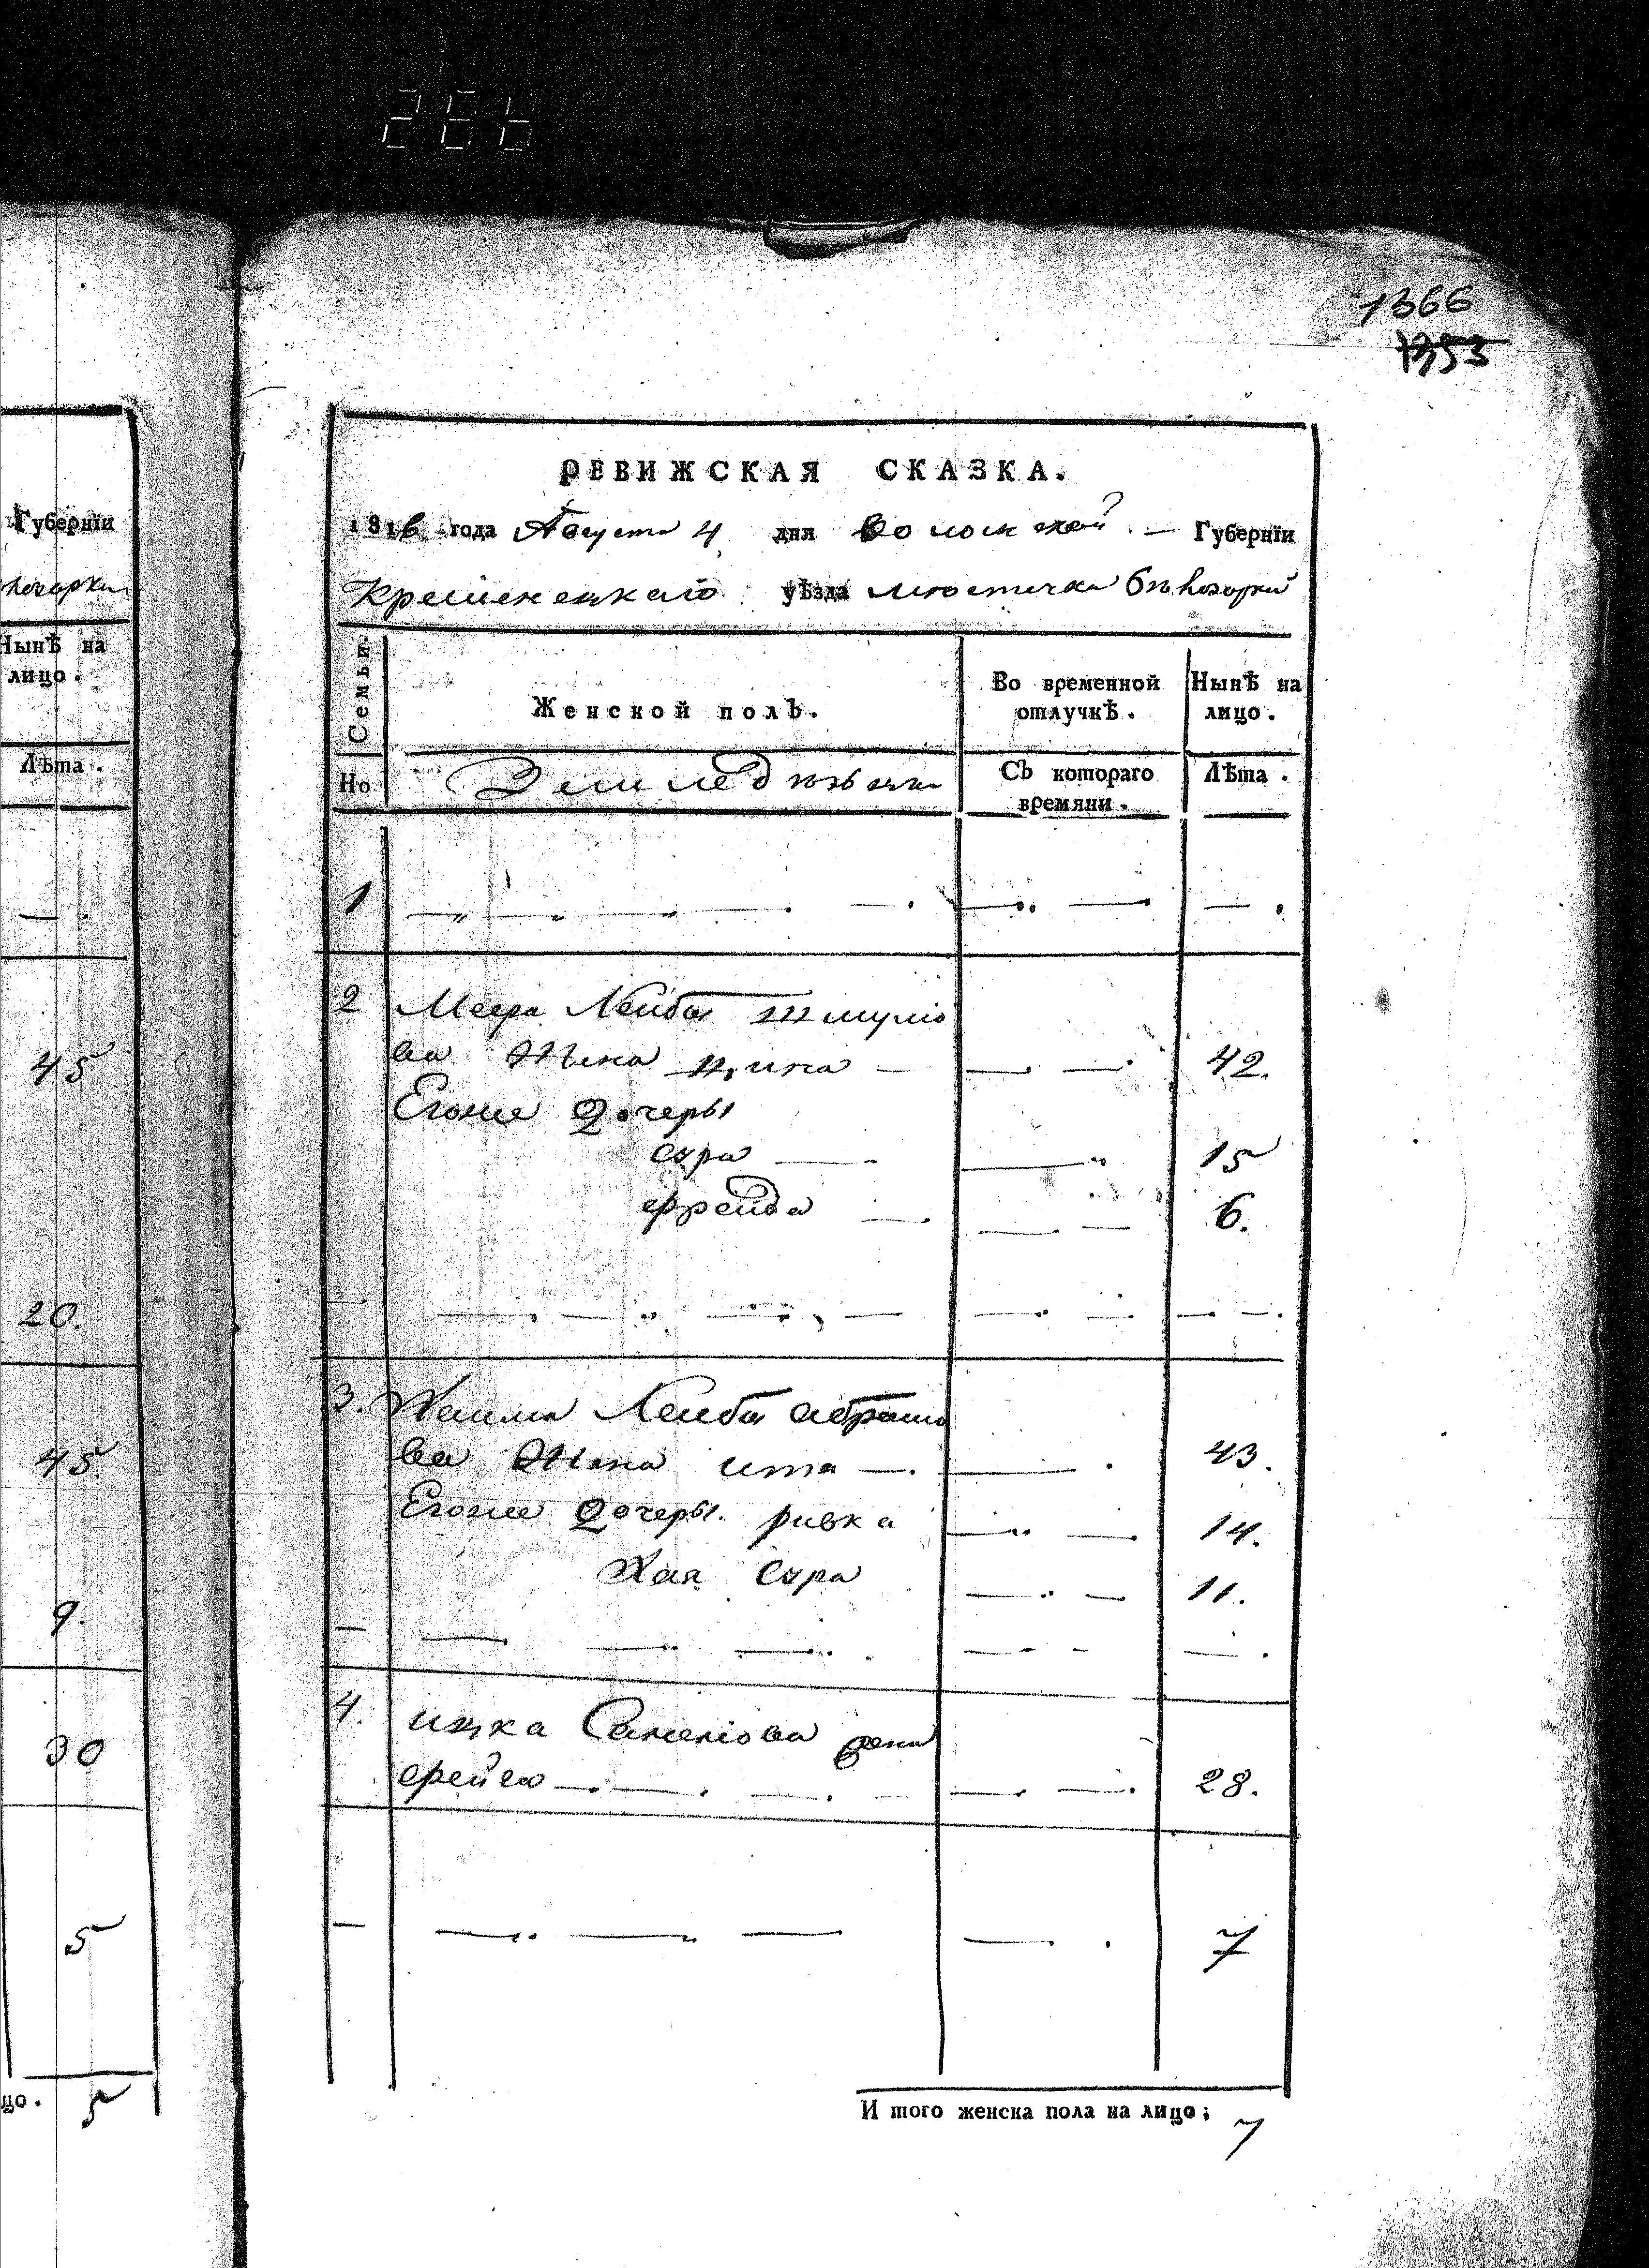 266
1366
1353
РЕВИЖСКАЯ СКАЗКА.
1816 года Августа 4 дня Волынской Губернїи
Кременецкаго уѣзда местечка бѣлозорки
Семьи.
Женской полъ.
Во временной отлучкѣ.
Нынѣ на лицо.
Но
Съ котораго времяни.
Лѣта.
1
2 Меера Лейба шмулё
ва Жена 42.
Егоже Дочеры
сура 15
фрейда 6.
3. Хаима Лейба абрамо
ва Жена ита 43.
Егоже Дочеры ривка 14.
Хая Сура 11.
4. ицка жена
фейга 28.
7
И того женска пола на лицо; 7
Губернїи
Нынѣ на
лицо.
Лѣта.
45
20.
45.
9.
30
5
цо. 5